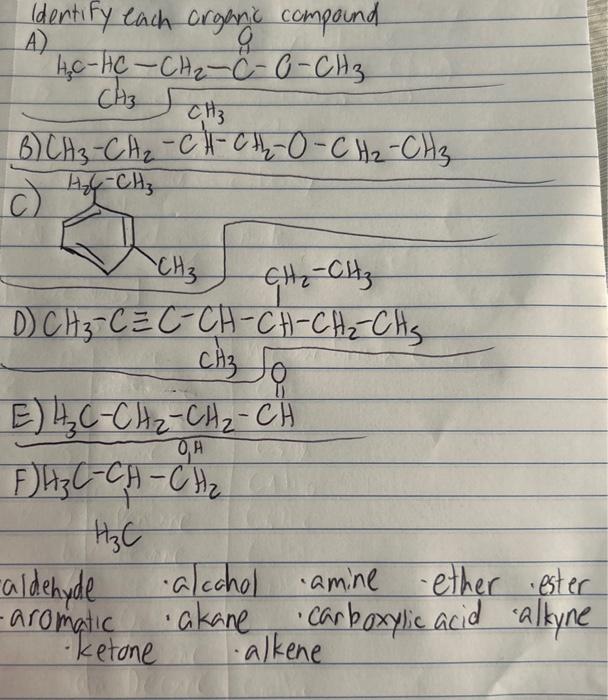 Identify each organic compound
A)
O
H₃C-HC-CH₂-C-O-CH₃
CH₃
CH₃
B) CH₃-CH₂-CH-CH₂-O-CH₂-CH₃
H₂C-CH₃
C)
CH₃
CH₂-CH₃
D) CH₃-C≡C-CH-CH-CH₂-CH₃
CH₃
O
E) H₃C-CH₂-CH₂-CH
OH
F) H₃C-CH-CH₂
H₃C
aldehyde ·alcohol ·amine -ether ·ester
-aromatic ·akane ·carboxylic acid ·alkyne
·ketone ·alkene